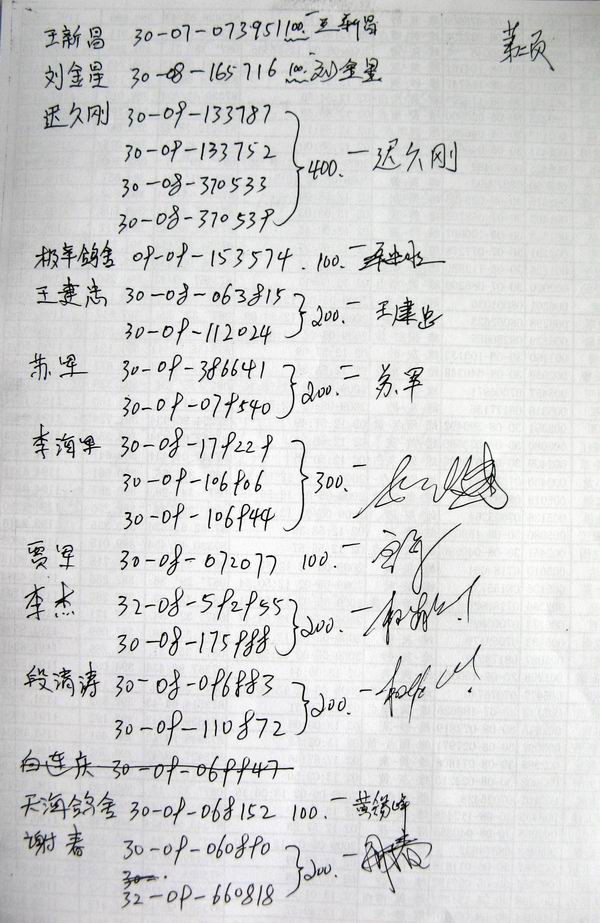 王新昌 30-07-073951 100.- 王新昌
刘金星 30-08-165716 100.- 刘金星
迟久刚 30-09-133787
30-09-133752
30-08-370533
30-08-370539
400.- 迟久刚
极年鸽舍 09-09-153574 . 100.-
王建忠 30-08-063815
30-09-112024
200.- 王建忠
苏军 30-09-386641
30-09-079540
200.- 苏军
李海军 30-08-179229
30-09-106906
30-09-106944
300.-
贾军 30-08-072077 100.-
李杰 32-08-592955
30-08-175988
200.-
段清涛 30-08-096883
30-09-110872
200.-
白连庆 30-09-069947
天海鸽舍 30-09-068152 100.- 黄锡峰
谢春 30-09-060890
30-
32-09-660818
200.- 谢春